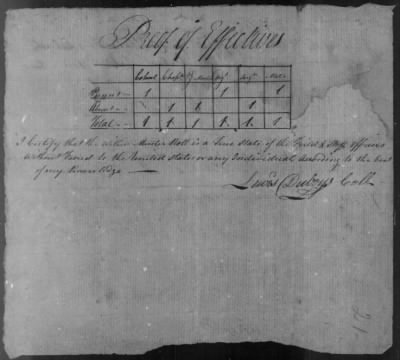 Proof of Effectives
Colonel Chapn Qr Masr Adjt Surgn Mate
Present 1 1 1
Absent 1 1 1
Total 1 1 1 1 1 1
I Certify that the within Muster Roll is a true State of the Field & Staff officers
without Fraud to the United States or any Individual According to the best
of my Knowledge
Lewis Duboys Coll